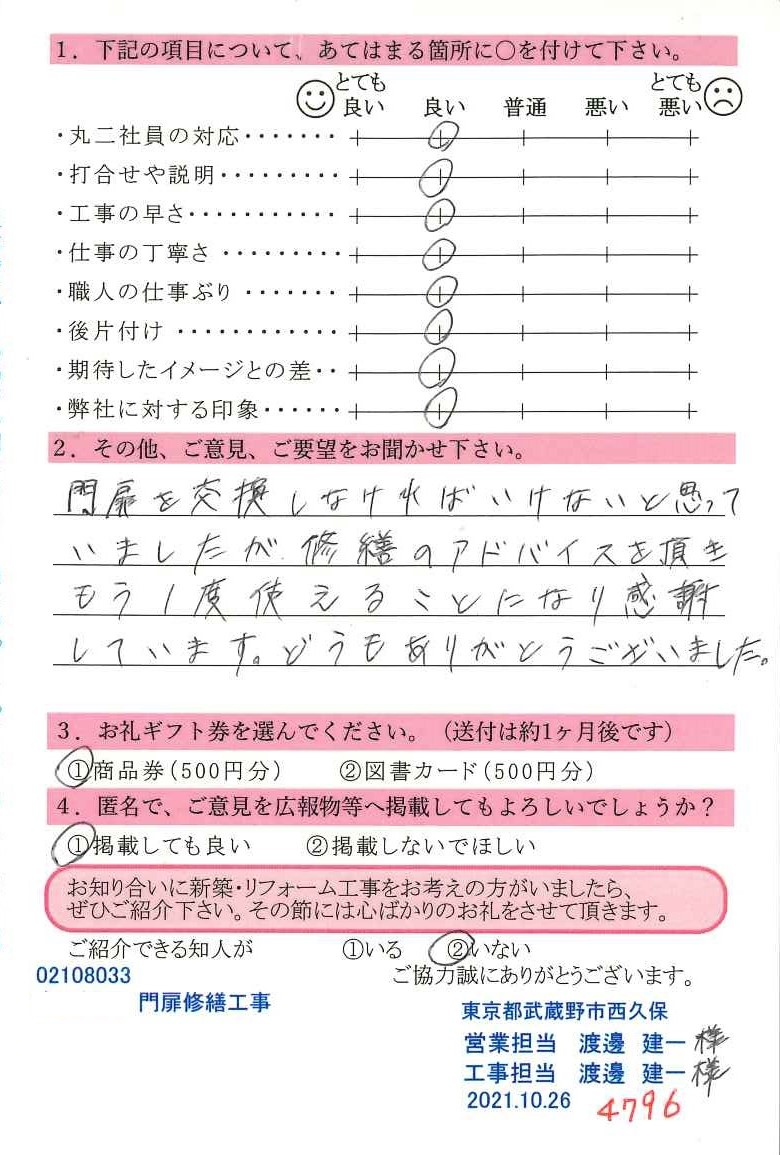 1．下記の項目について、あてはまる箇所に○を付けて下さい。
とても良い 良い 普通 悪い とても悪い
・丸二社員の対応・・・・・・・
・打合せや説明・・・・・・・・・
・工事の早さ・・・・・・・・・・・
・仕事の丁寧さ・・・・・・・・・
・職人の仕事ぶり・・・・・・・
・後片付け・・・・・・・・・・・・
・期待したイメージとの差・・
・弊社に対する印象・・・・・・
2．その他、ご意見、ご要望をお聞かせ下さい。
門扉を交換しなければいけないと思って
いましたが、修繕のアドバイスを頂き
もう1度使えることになり感謝
しています。どうもありがとうございました。
3．お礼ギフト券を選んでください。（送付は約1ヶ月後です）
①商品券(500円分) ②図書カード(500円分)
4．匿名で、ご意見を広報物等へ掲載してもよろしいでしょうか？
①掲載しても良い ②掲載しないでほしい
お知り合いに新築・リフォーム工事をお考えの方がいましたら、
ぜひご紹介下さい。その節には心ばかりのお礼をさせて頂きます。
ご紹介できる知人が ①いる ②いない
02108033 ご協力誠にありがとうございます。
門扉修繕工事
東京都武蔵野市西久保
営業担当 渡邊 建一 様
工事担当 渡邊 建一 様
2021.10.26 4796